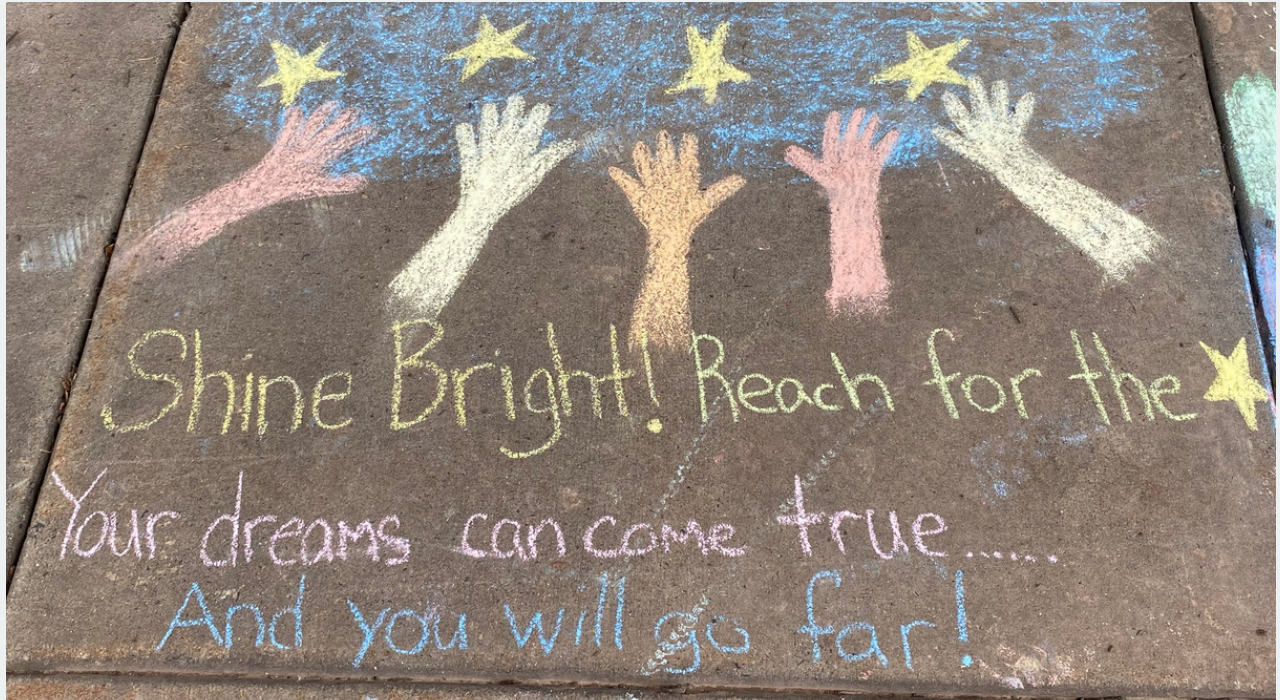 Shine Bright! Reach for the
Your dreams can come true......
And you will go far!